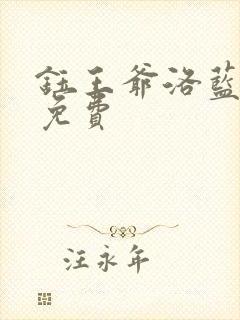 鈺王爺洛藍
免費
汪永年